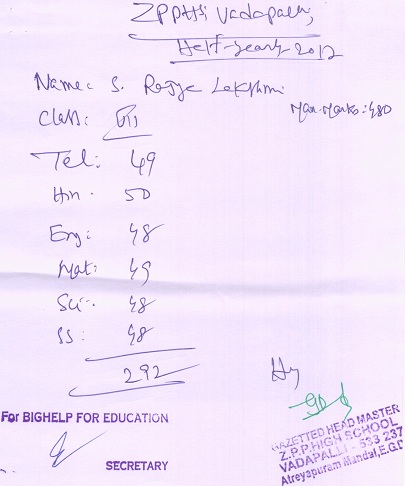 ZPPHS Vadapalli,
Half-yearly 2012
Name: S. Rajya Lakshmi
Max-Marks: 480
Class: VII
Tel: 49
Hin. 50
Eng: 48
Mat: 49
Sci: 48
SS: 48
292
For BIGHELP FOR EDUCATION
SECRETARY
GAZETTED HEAD MASTER
Z.P.P.HIGH SCHOOL
VADAPALLI - 533 237
Atreyapuram Mandal, E.G.D